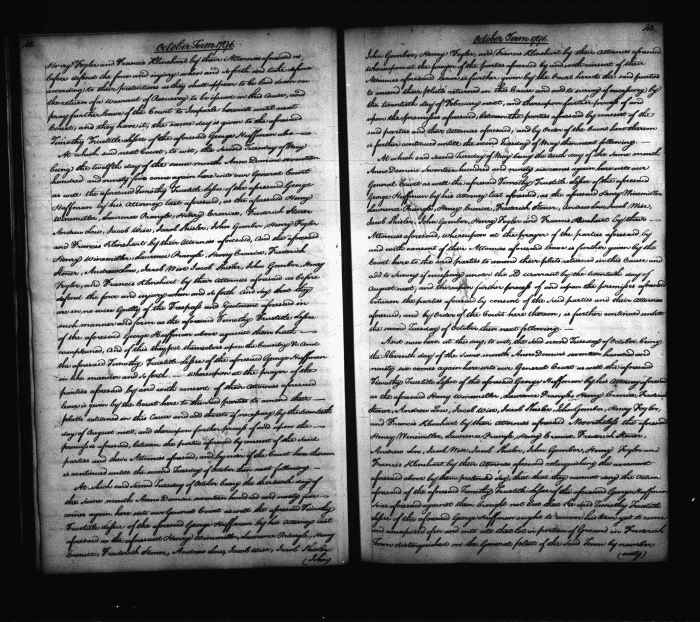 October Term 1796
Henry Fogler and Francis Klinehart by their Attornies aforesaid as
before defend the force and injury when and so forth and take defence
according to their pretentions as they shall appear to be laid down on
the return of a Warrant of Resurvey to be issued in this Cause, and
pray further leave of the Court to Imparle hereunto until next
Court, and they have it, the same day is given to the aforesaid
Timothy Trusttitle Lessee of the aforesaid George Huffman also
At which said next Court, to wit, the second Tuesday of May
being the twelfth day of the same month Anno Domini seventeen
hundred and ninety five comes again here into our General Court
as well the aforesaid Timothy Trusttitle Lessee of the aforesaid George
Huffman by his Attorney last aforesaid, as the aforesaid Henry
Winemiller, Lawrence Prangle, Henry Cronice, Frederick Stoner
Andrew Low, Jacob Wise, Jacob Shisler, John Gomber, Henry Fogler
and Francis Klinehart by their Attornies aforesaid, and the aforesaid
Henry Winemiller, Lawrence Prangle, Henry Cronice, Frederick
Stoner, Andrew Low, Jacob Wise, Jacob Shisler, John Gomber, Henry
Fogler, and Francis Klinehart by their Attornies aforesaid as before
defend the force and injury when and so forth and say that they
are in no wise Guilty of the Trespass and Ejectment aforesaid in
such manner and form as the aforesaid Timothy Trusttitle Lessee
of the aforesaid George Huffman above against them hath
complained, and of this they put themselves upon the Country &c. And
the aforesaid Timothy Trusttitle Lessee of the aforesaid George Huffman
in like manner and so forth. — whereupon at the prayer of the
parties aforesaid by and with consent of their Attornies aforesaid
leave is given by the Court here to the said parties to amend their
plotts returned in this Cause and add thereto if necessary by the twentieth
day of August next, and thereupon further proof of and upon the
premises aforesaid, between the parties aforesaid by consent of the said
parties and their Attornies aforesaid, and by order of the Court here thereon
is continued until the second Tuesday of October then next following.
At which said second Tuesday of October being the thirteenth day of
the same month Anno Domini seventeen hundred and ninety five
comes again here into our General Court as well the aforesaid Timothy
Trusttitle Lessee of the aforesaid George Huffman by his Attorney last
aforesaid as the aforesaid Henry Winemiller, Lawrence Prangle, Henry
Cronice, Frederick Stoner, Andrew Low, Jacob Wise, Jacob Shisler
(John)
October Term 1796
John Gomber, Henry Fogler, and Francis Klinehart by their Attornies aforesaid,
whereupon at the prayer of the parties aforesaid by and with consent of their
Attornies aforesaid leave is further given by the Court here to the said parties
to amend their plotts returned in this Cause and add to survey if necessary, by
the twentieth day of February next, and thereupon further proof of and
upon the premises aforesaid, between the parties aforesaid by consent of the
said parties and their Attornies aforesaid, and by Order of the Court here thereon
is further continued until the second Tuesday of May then next following.
At which said second Tuesday of May being the tenth day of the same month
Anno Domini seventeen hundred and ninety six comes again here into our
General Court as well the aforesaid Timothy Trusttitle Lessee of the aforesaid
George Huffman by his Attorney last aforesaid, as the aforesaid Henry Winemiller
Lawrence Prangle, Henry Cronice, Frederick Stoner, Andrew Low, Jacob Wise,
Jacob Shisler, John Gomber, Henry Fogler, and Francis Klinehart by their
Attornies aforesaid, whereupon at the prayer of the parties aforesaid by
and with consent of their Attornies aforesaid leave is further given by the
Court here to the said parties to amend their plotts returned in this Cause and
add to survey if necessary under the Warrant by the twentieth day of
August next, and thereupon further proof of and upon the premises aforesaid
between the parties aforesaid by consent of the said parties and their Attornies
aforesaid, and by Order of the Court here thereon, is further continued until
the second Tuesday of October then next following.
And now here at this day, to wit, the said second Tuesday of October being
the Eleventh day of the same month Anno Domini seventeen hundred and
ninety six comes again here into our General Court as well the aforesaid
Timothy Trusttitle Lessee of the aforesaid George Huffman by his Attorney aforesaid
as the aforesaid Henry Winemiller, Lawrence Prangle, Henry Cronice, Frederick
Stoner, Andrew Low, Jacob Wise, Jacob Shisler, John Gomber, Henry Fogler,
and Francis Klinehart by their Attornies aforesaid Nevertheless the aforesaid
Henry Winemiller, Lawrence Prangle, Henry Cronice, Frederick Stoner,
Andrew Low, Jacob Wise, Jacob Shisler, John Gomber, Henry Fogler and
Francis Klinehart by their Attornies aforesaid relinquishing the
aforesaid above by them pretended say, that they cannot say the action
aforesaid of the aforesaid Timothy Trusttitle Lessee of the aforesaid George Huffman
is as aforesaid against them brought nor but that he said Timothy Trusttitle
Lessee of the aforesaid George Huffman ought to recover his term yet to come
and unexpired of in and into all that lot or portion of Ground in Frederick
Town distinguished on the General plott of the said Town by number
(sixty)